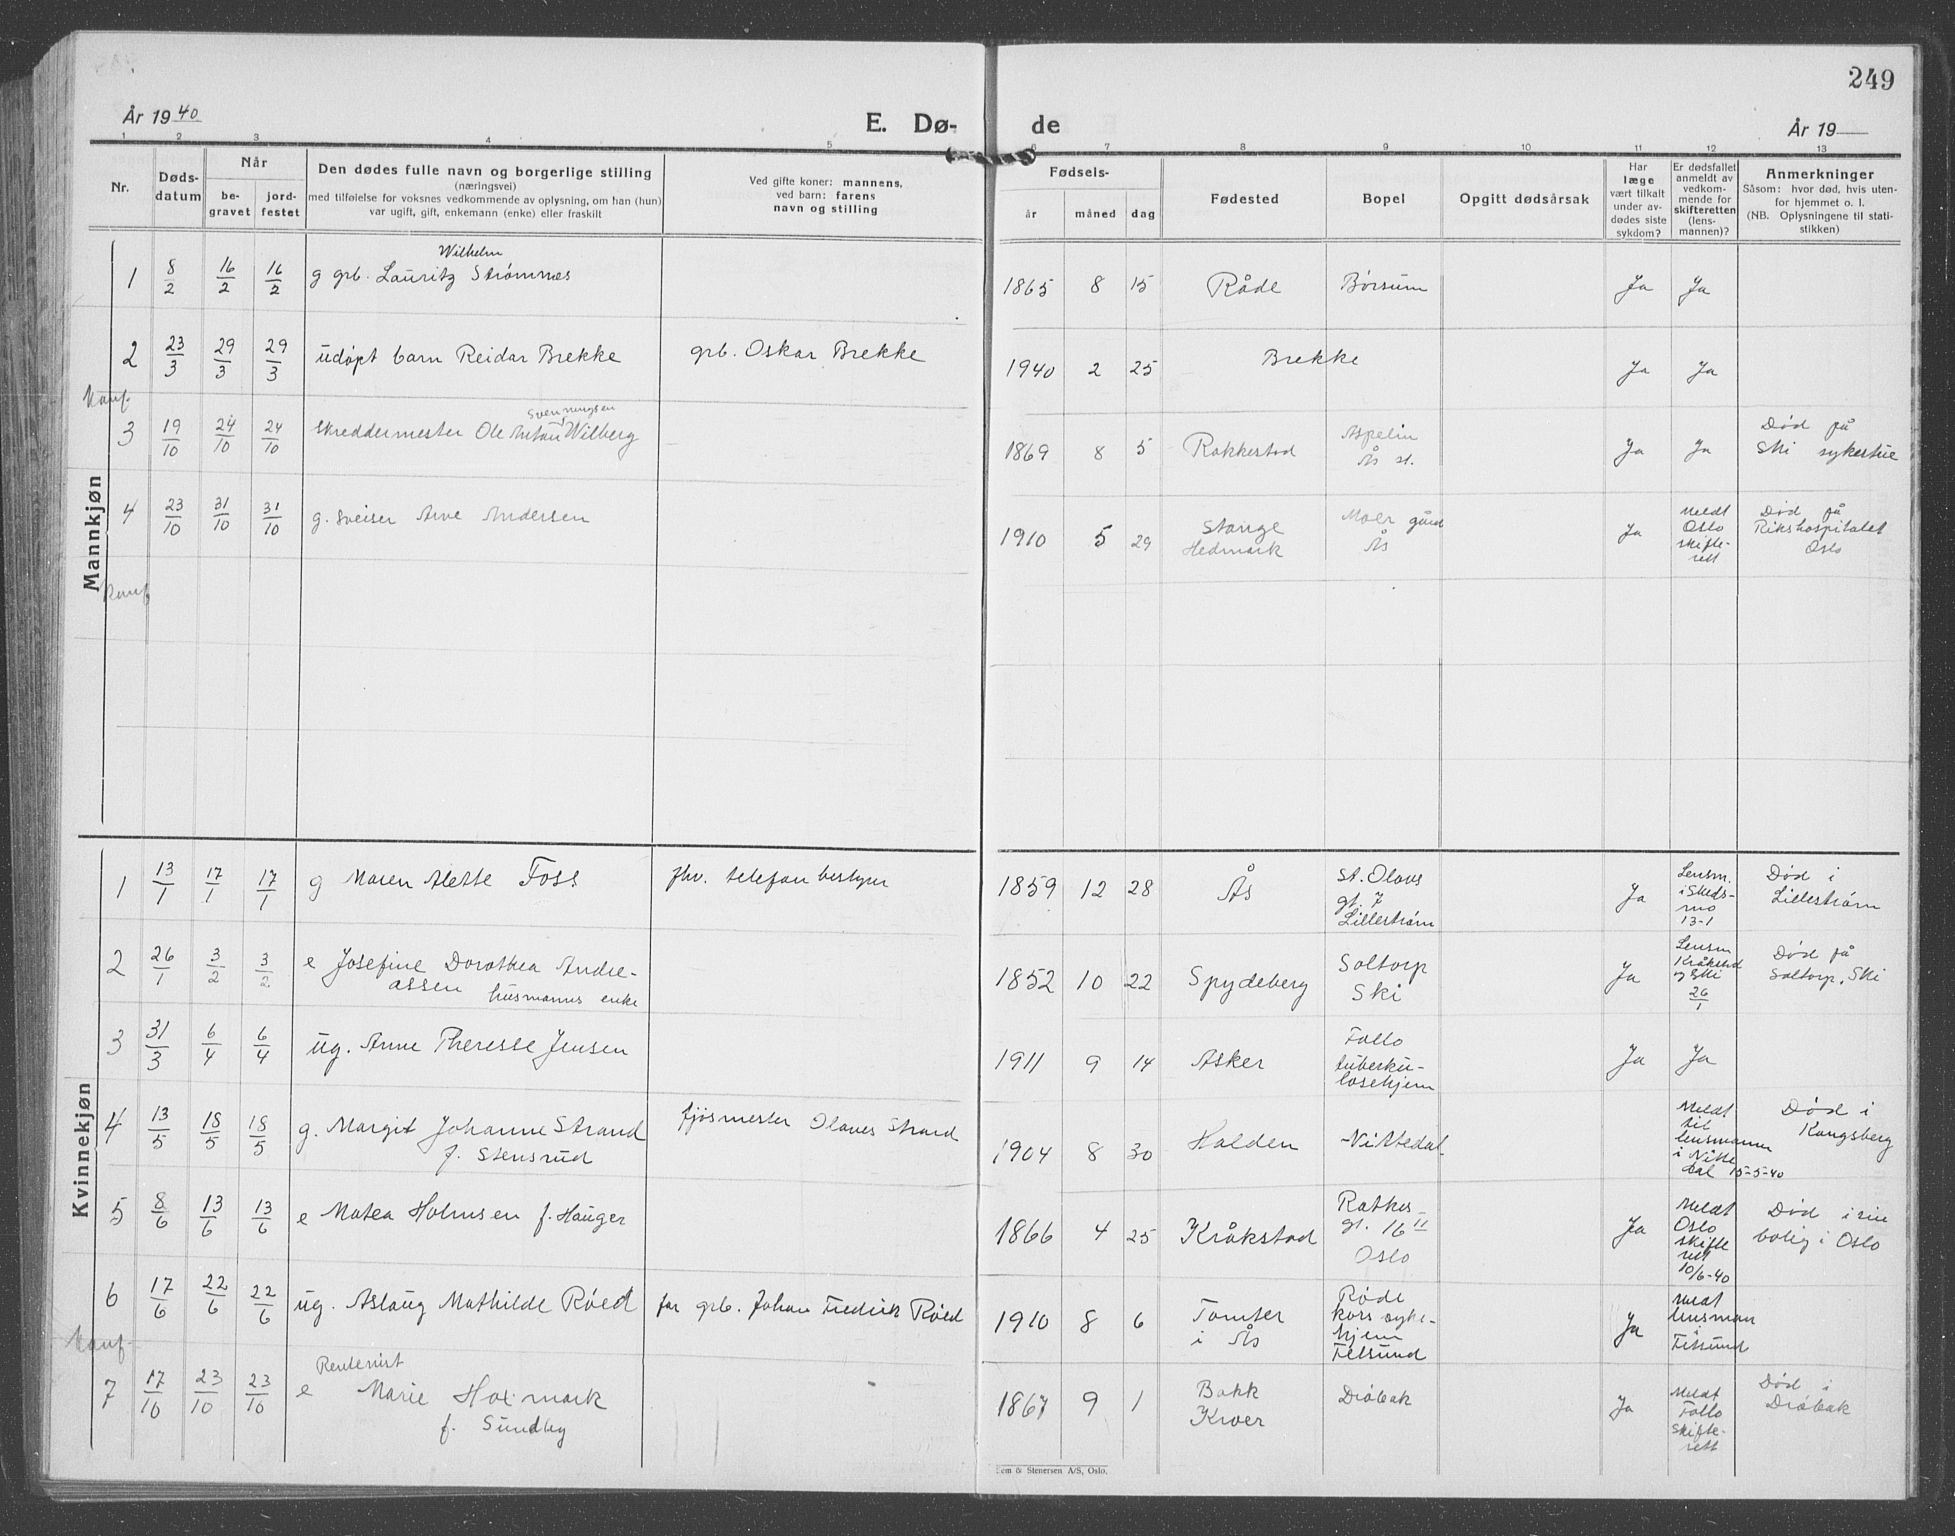 249
År 1940
E. Dø-
de
År 19
1 2 3 4 5 6 7 8 9 10 11 12 13
Nr.
Døds-
datum
Når
be-
gravet
jord-
festet
Den dødes fulle navn og borgerlige stilling
(næringsvei)
med tilføielse for voksnes vedkommende av oplysning, om han (hun)
var ugift, gift, enkemann (enke) eller fraskilt
Ved gifte koner: mannens,
ved barn: farens
navn og stilling
Fødsels-
år måned dag
Fødested
Bopel
Opgitt dødsårsak
Har
læge
vært tilkalt
under av-
dødes siste
sykdom?
Er dødsfallet
anmeldt av
vedkom-
mende for
skifteretten
(lens-
mannen)?
Anmerkninger
Såsom: hvor død, hvis uten-
for hjemmet o. l.
(NB. Oplysningene til stati-
stikken)
Mannkjøn
Wilhelm
1 8/2 16/2 16/2 g grb. Lauritz Strømnes 1865 8 15 Råde Børsum Ja Ja
2 23/3 29/3 29/3 udøpt barn Reidar Brekke grb. Oskar Brekke 1940 2 25 Brekke Ja Ja
Svenningsen
3 19/10 24/10 24/10 Skreddermester Ole Anton Wilberg 1869 8 5 Rakkestad Aspelin
Ås st.
Ja Ja
Død på
Ski sykestue
4 23/10 31/10 31/10 g. Sveiser Arve Andersen 1910 5 29 Stange
Hedmark
Moer gård
Ås
Ja
Meldt
Oslo
skifte-
rett
Død på
Rikshospitalet
Oslo
Kvinnekjøn
1 13/1 17/1 17/1 g Maren Alette Foss fhv. telefonbestyrer 1859 12 28 Ås
St. Olavs
gt. 7
Lillestrøm
Ja
Lensm.
i Skeds-
mo
13-1
Død i
Lillestrøm
2 26/1 3/2 3/2 e Josefine Dorothea Andre-
assen husmanns enke
1852 10 22 Spydeberg
Soltorp
Ski
Ja
Lensm
Kråkstad
og Ski
26/1
Død på
Soltorp, Ski
3 31/3 6/4 6/4 ug. Anne Theresse Jensen 1911 9 14 Asker
Follo
tuberku-
losehjem
Ja Ja
4 13/5 18/5 18/5 g. Margit Johanne Strand
f. Stensrud
fjøsmester Olaves Strand
1904 8 30 Halden Nittedal
Meldt
til
lensmannen
i Nitte
dal 15-5-40
Død i
Kongsberg
5 8/6 13/6 13/6 e Matea Holmsen f. Hauger 1866 4 25 Kråkstad
Rathkes-
gt. 16 II
Oslo
Ja
Meldt
Oslo
skifte
rett
10/6-40
Død i sin
bolig i Oslo
6 17/6 22/6 22/6 ug. Aslaug Mathilde Røed far grb. Johan Fredrik Røed 1910 8 6 Tomter
i Ås
Røde
kors syke-
hjem
Fetsund
Ja
Meldt
lensman
Fetsund
Rentenist
7 17/10 23/10 23/10 e Marie Holmark
f. Sundby
1867 9 1 Bakk
Kroer
Drøbak
Ja
Meldt
Follo
Skifte-
rett
Død i
Drøbak
Sem & Stenersen A/S, Oslo.